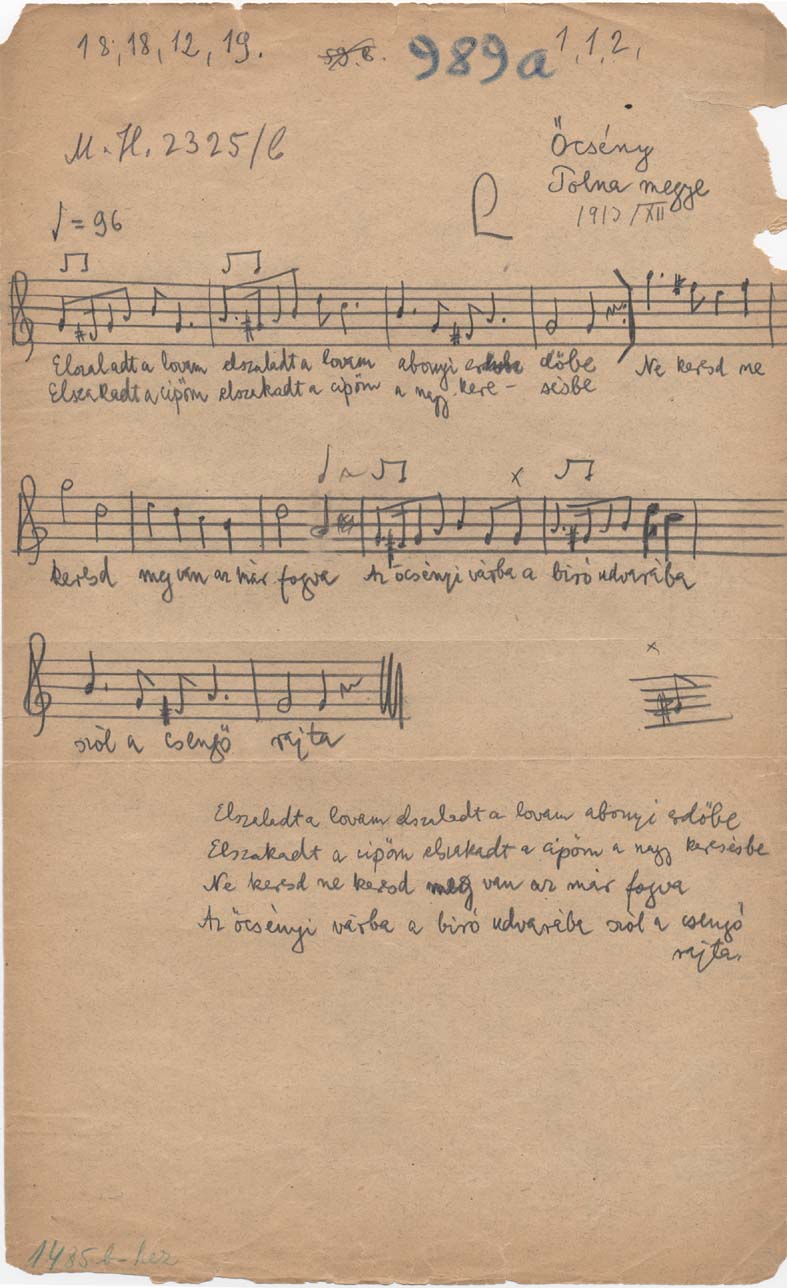 18, 18, 12, 19. 989a 1, 1, 2,
M. H. 2325/b
Őcsény
Tolna megye
/XII
♩ = 96
Elszaladt a lovam elszaladt a lovam abonyi dőbe Ne keresd ne
Elszakadt a cipőm elszakadt a cipőm a nagy kere - sésbe
keresd meg van az már fogva Az őcsényi várba a biró udvarába
x
x
szól a csengő rajta
Elszaladt a lovam elszaladt a lovam abonyi erdőbe
Elszakadt a cipőm elszakadt a cipőm a nagy keresésbe
Ne keresd ne keresd meg van az már fogva
Az őcsényi várba a biró udvarába szól a csengő
rajta.